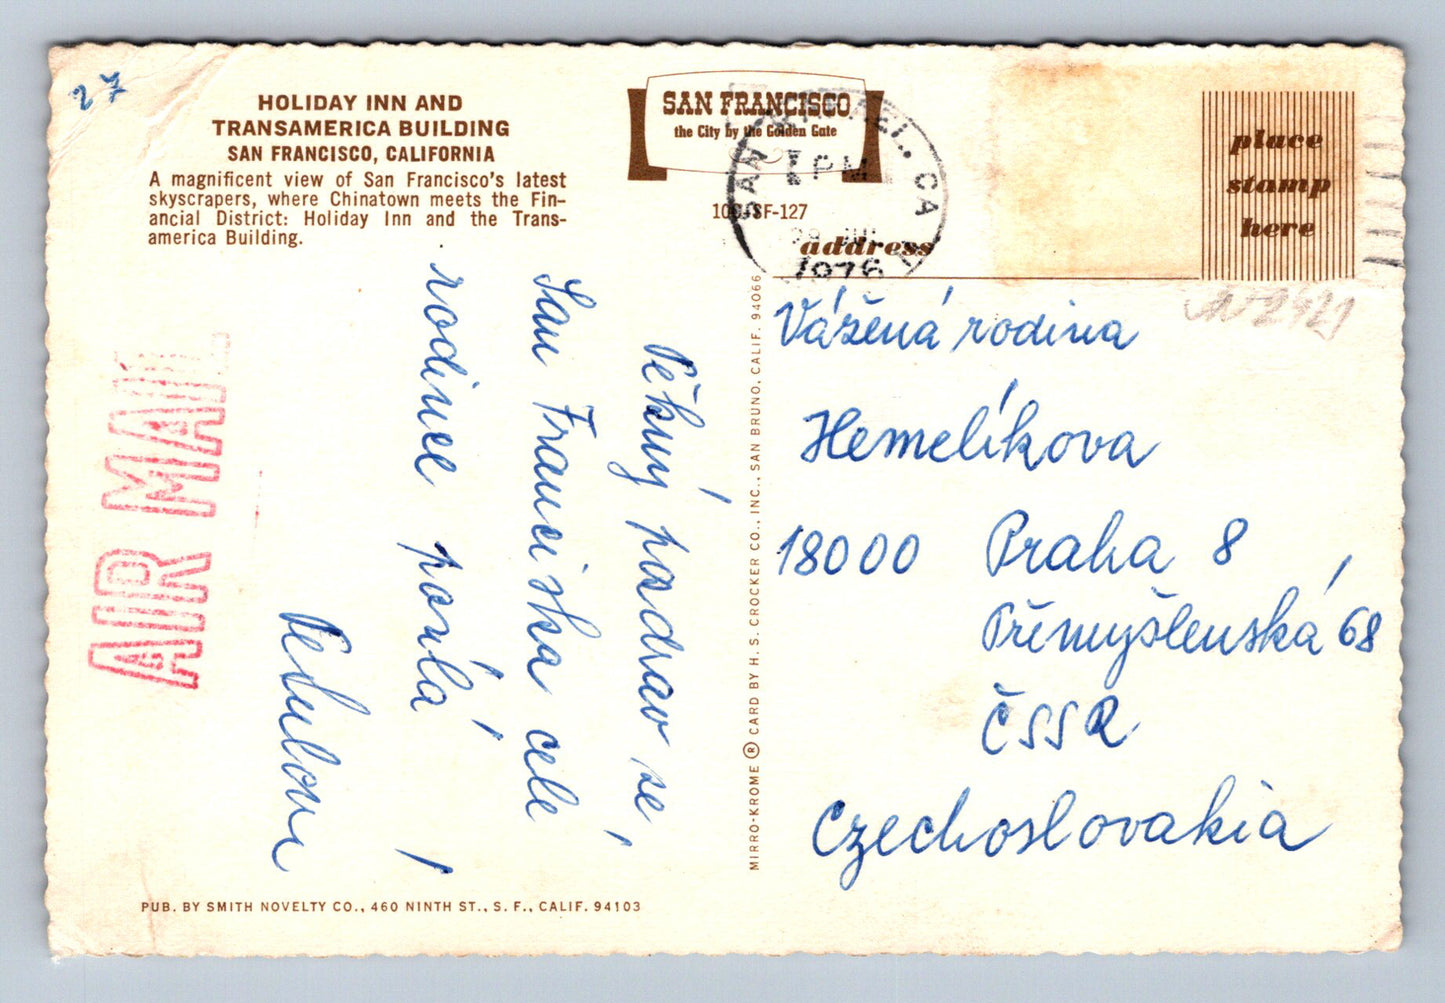 27
HOLIDAY INN AND
TRANSAMERICA BUILDING
SAN FRANCISCO, CALIFORNIA
A magnificent view of San Francisco's latest
skyscrapers, where Chinatown meets the Fin-
ancial District: Holiday Inn and the Trans-
america Building.
SAN FRANCISCO
the City by the Golden Gate
SF-127
SAN RAFAEL, CA
PM
1976
place
stamp
here
address
AIR MAIL
Pěkný pozdrav ze
San Franciska celé
rodince posílá
Vážená rodina
Hemelíkova
18000 Praha 8
Přemyšlenská 68
ČSSR
Czechoslovakia
MIRRO-KROME ® CARD BY H. S. CROCKER CO., INC., SAN BRUNO, CALIF. 94066
PUB. BY SMITH NOVELTY CO., 460 NINTH ST., S. F., CALIF. 94103